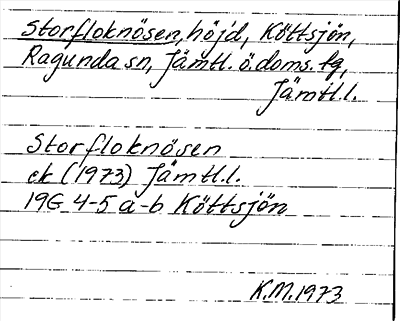 Storfloknösen, höjd, Köttsjön,
Ragunda sn, Jämtl. ö. doms. tg,
Jämtl.l.
Storfloknösen
ek (1973) Jämtl.l.
19G 4-5 a-b Köttsjön
K.M.1973